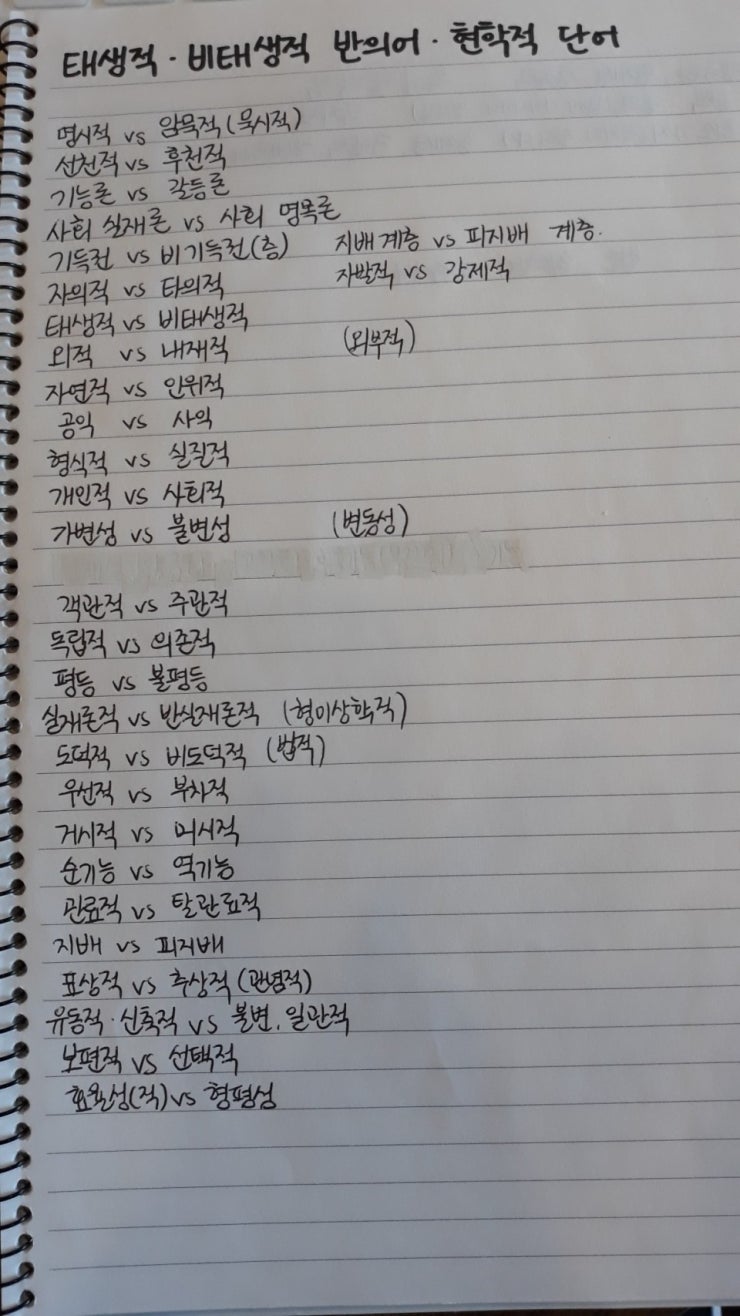 태생적 · 비태생적 반의어 · 현학적 단어
명시적 vs 암묵적(묵시적)
선천적 vs 후천적
기능론 vs 갈등론
사회 실재론 vs 사회 명목론
기득권 vs 비기득권(층) 지배 계층 vs 피지배 계층.
자의적 vs 타의적 자발적 vs 강제적
태생적 vs 비태생적
외적 vs 내재적 (외부적)
자연적 vs 인위적
공익 vs 사익
형식적 vs 실질적
개인적 vs 사회적
가변성 vs 불변성 (변동성)
객관적 vs 주관적
독립적 vs 의존적
평등 vs 불평등
실재론적 vs 반실재론적 (형이상학적)
도덕적 vs 비도덕적 (법적)
우선적 vs 부차적
거시적 vs 미시적
순기능 vs 역기능
관료적 vs 탈관료적
지배 vs 피지배
표상적 vs 추상적(관념적)
유동적·신축적 vs 불변, 일관적
보편적 vs 선택적
효율성(적) vs 형평성